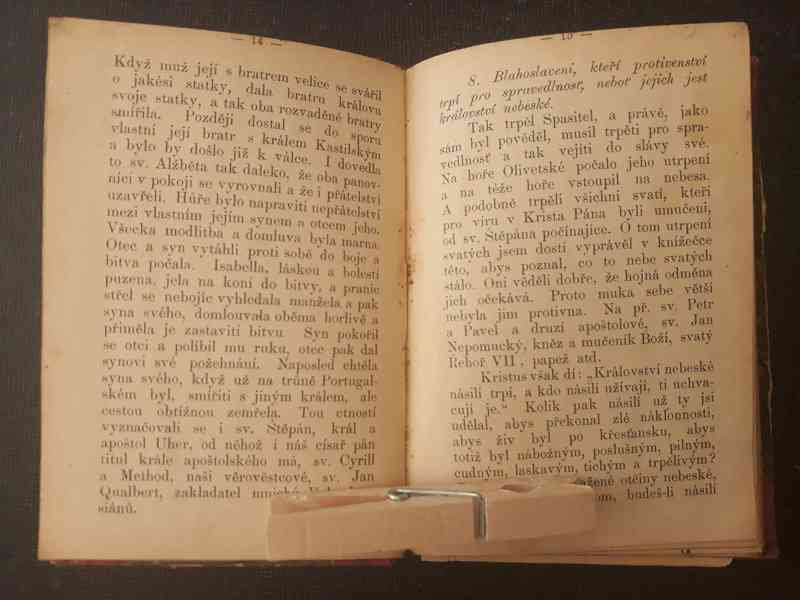 — 14 —
Když muž její s bratrem velice se svářil
o jakési statky, dala bratru královu
svoje statky, a tak oba rozvaděné bratry
smířila. Později dostal se do sporu
vlastní její bratr s králem Kastilským
a bylo by došlo již k válce. I dovedla
to sv. Alžběta tak daleko, že oba panov-
níci v pokoji se vyrovnali a že i přátelství
uzavřeli. Hůře bylo napraviti nepřátelství
mezi vlastním jejím synem a otcem jeho.
Všecka modlitba a domluva byla marna.
Otec a syn vytáhli proti sobě do boje a
bitva počala. Isabella, láskou a bolestí
puzena, jela na koni do bitvy, a pranic
střel se nebojíc vyhledala manžela a pak
syna svého, domlouvala oběma horlivě a
přiměla je zastaviti bitvu Syn pokořil
se otci a políbil mu ruku, otec pak dal
synovi své požehnání. Naposled chtěla
syna svého, když už na trůně Portugal-
ském byl, smířiti s jiným králem, ale
cestou obtížnou zemřela. Tou ctností
vyznačovali se i sv. Štěpán, král a
apoštol Uher, od něhož i náš císař pán
titul krále apoštolského má, sv. Cyrill
a Method, naši věrověstcové, sv. Jan
Qualbert, zakladatel
siánů.
— 15 —
8. Blahoslavení, kteří protivenství
trpí pro spravedlnosť, neboť jejich jest
království nebeské.
Tak trpěl Spasitel, a právě, jako
sám byl pověděl, musil trpěti pro spra-
vedlnosť a tak vejíti do slávy své.
Na hoře Olivetské počalo jeho utrpení
a na téže hoře vstoupil na nebesa.
A podobně trpěli všichni svatí, kteří
pro víru v Krista Pána byli umučeni,
od sv. Štěpána počínajíce. O tom utrpení
svatých jsem dosti vyprávěl v knížečce
této, abys poznal, co to nebe svatých
stálo. Oni věděli dobře, že hojná odměna
jich očekává. Proto muka sebe větší
nebyla jim protivna. Na př. sv. Petr
a Pavel a druzí apoštolové, sv. Jan
Nepomucký, kněz a mučeník Boží, svatý
Řehoř VII , papež atd.
Kristus však dí: „Království nebeské
násilí trpí, a kdo násilí užívají, ti uchva-
cují je.“ Kolik pak násilí už ty jsi
udělal, abys překonal zlé náklonnosti,
abys živ byl po křesťansku, abys
totiž byl nábožným, poslušným, pilným,
cudným, laskavým, tichým a trpělivým?
otčiny nebeské,
budeš-li násilí